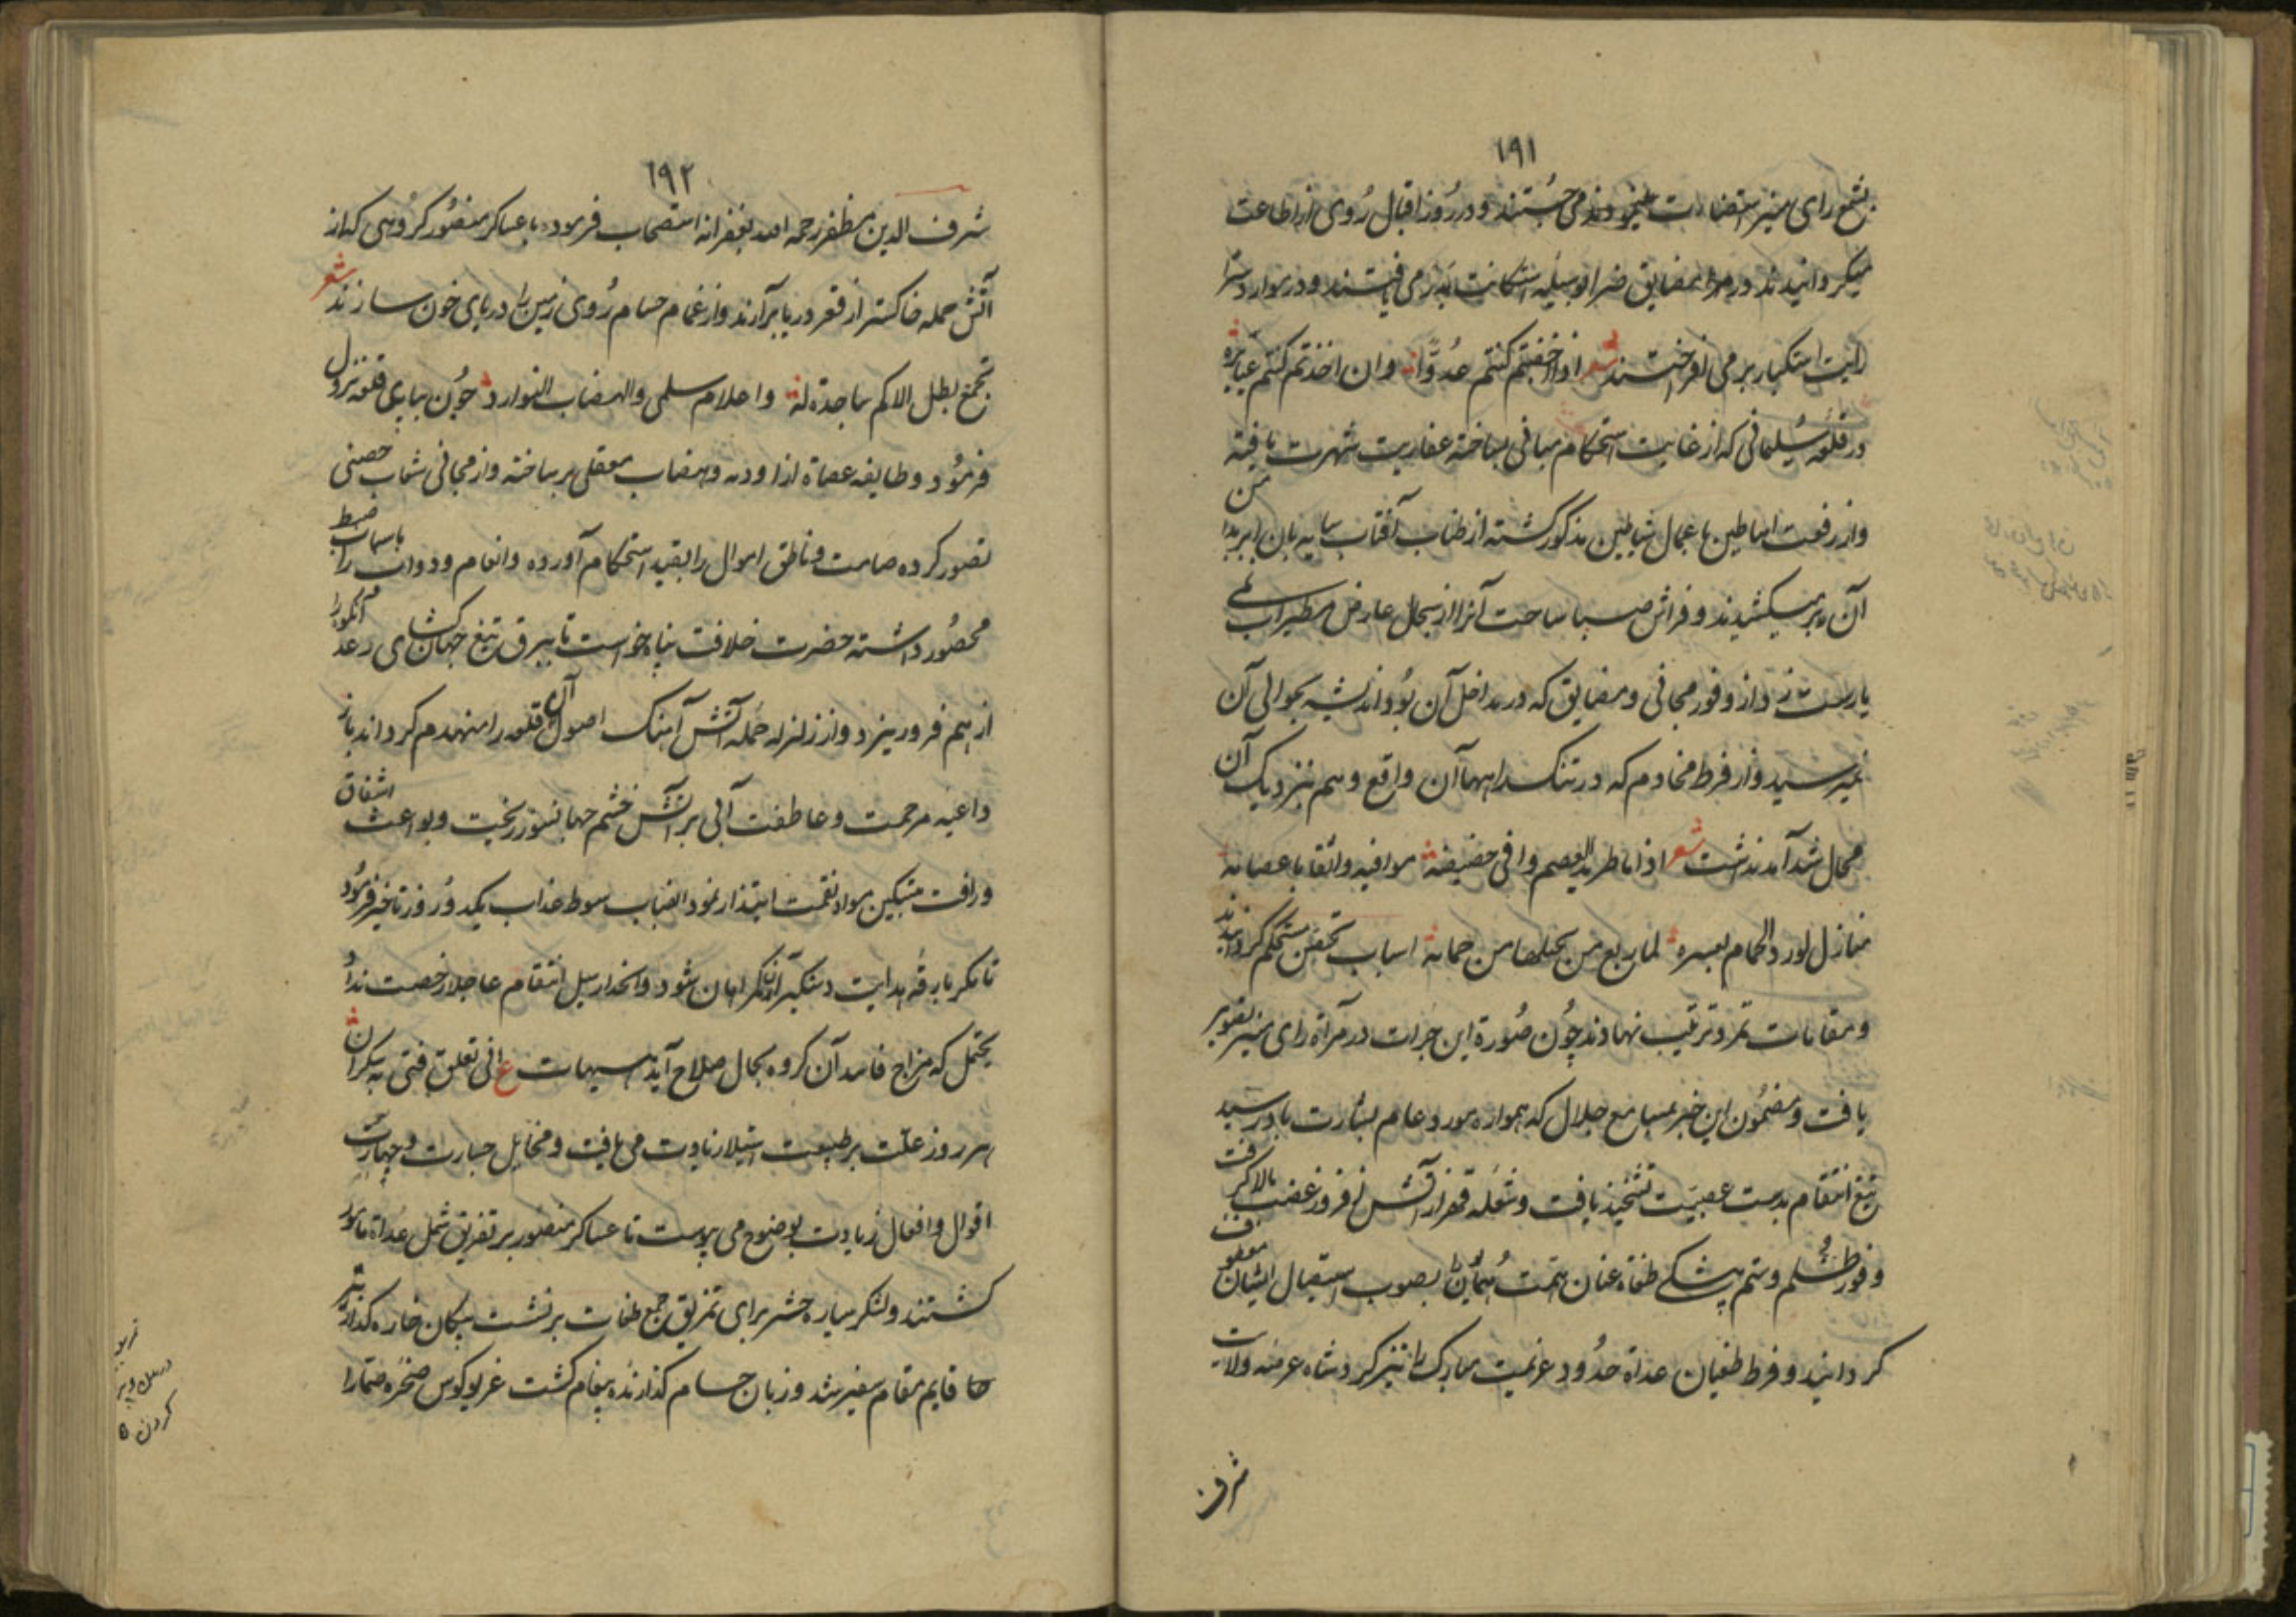 ١٩١
بشمع رای منیر استضاءت مینمودند می جستند و در روز اقبال روی از اطاعت
میکردانیدند و در مضایق ضرا بوسیله استکانت می یافتند و در موارد سترا
رایت استکبار بر می افراختند شعر اذا خفتم کنتم عدوا وان اخذتم کنتم
در قلعه سلیمانی که از غایت استحکام مبانی بساخته عفاریت شهرت یافته
واز رفعت اساطین باعمال شیاطین مذکور کشته از طناب آفتاب سایه بان ابر بر من
آن میکشیدند و فراش صبا ساحت آنرا از سجال عارض مطیر آب
یارست زد واز وفور مجانی و مضایق که در مداخل آن بود اندیشه بحوالی آن
نمیرسید واز فرط مخادم که در تنک راهها آن واقع وهم بنزدیک آن
محال شد آمد نداشت شعر اذا ما طرید العصم وافی حضیضه موافیه واثقا باعصامه
منازل لورد الحمام لعسره لما ریع من یحتلها من حمامه اسباب تحصن مستحکم کردانیدند
و مقامات تمرد ترتیب نهادند چون صورة این جرات در مرآة رای منیر تصویر
یافت و مضمون این خبر بمسامع جلال که همواره مورد عالم بشارت باد رسید
تیغ انتقام بدست عصبیت تشحیذ یافت و شعله قهر از آتش افروز غضب بالا کرفت
و فور ظلم و ستم پیشکی طغاة عنان همت همایون بصوب استیصال ایشان معطوف
کردانید و فرط طغیان عداة حدود عزیمت مبارک را تیز کرد شاه عرصه ولایت
شرف
١٩٢
شرف الدین مظفر رحمه الله بغفرانه استصحاب فرموده باعساکر منصور کروهی که از
آتش حمله خاکستر از قعر دریا برآرند واز غمام حسام روی زمین را دریای خون سازند شعر
بجمع تظل الاکم ساجدة له واعلام سلمی والهضاب النوادر چون بپای قلعه نزول
فرمود و طایفه عصاة از اودیه و هضاب معقلی بر ساخته واز مجانی شعاب حصنی
تصور کرده صامت و ناطق اموال را بقید استحکام آورده وانعام و دواب را باسباب ضبط
محصور داشته حضرت خلافت پناه خواست تا ببرق تیغ جهان کشای رعد آن کوه را
از هم فرو ریزد واز زلزله حمله آتش آهنک اصول آن قلعه را منهدم کرداند باز
داعیه مرحمت و عاطفت آبی بر آتش خشم جهانسوز ریخت و بواعث اشفاق
و رافت بتسکین مواد نقمت ابتدار نمود انصباب سوط عذاب یکدو روز تاخیر فرمود
تا مکر بارقه هدایت دستکیر آن کمراهان شود وانحدار سیل انتقام عاجلا رخصت نداد
یحتمل که مزاج فاسد آن کروه بحال صلاح آید هیهات ع انی تعلق فتی بکران
هر روز علت بر طبیعت استیلا زیادت می یافت و مخایل جسارت و جهارت
اقوال وافعال زیادت بوضوح می پیوست تا عساکر منصور بر تفریق شمل عداة مامور
کشتند و لشکر سیاره حشر برای تمزیق جمع طغات بر نشست پیکان خاره کذار تیر
قایم مقام سفیر شد و زبان حسام کذارنده پیغام کشت غریو کوس صخره صما را
کردن